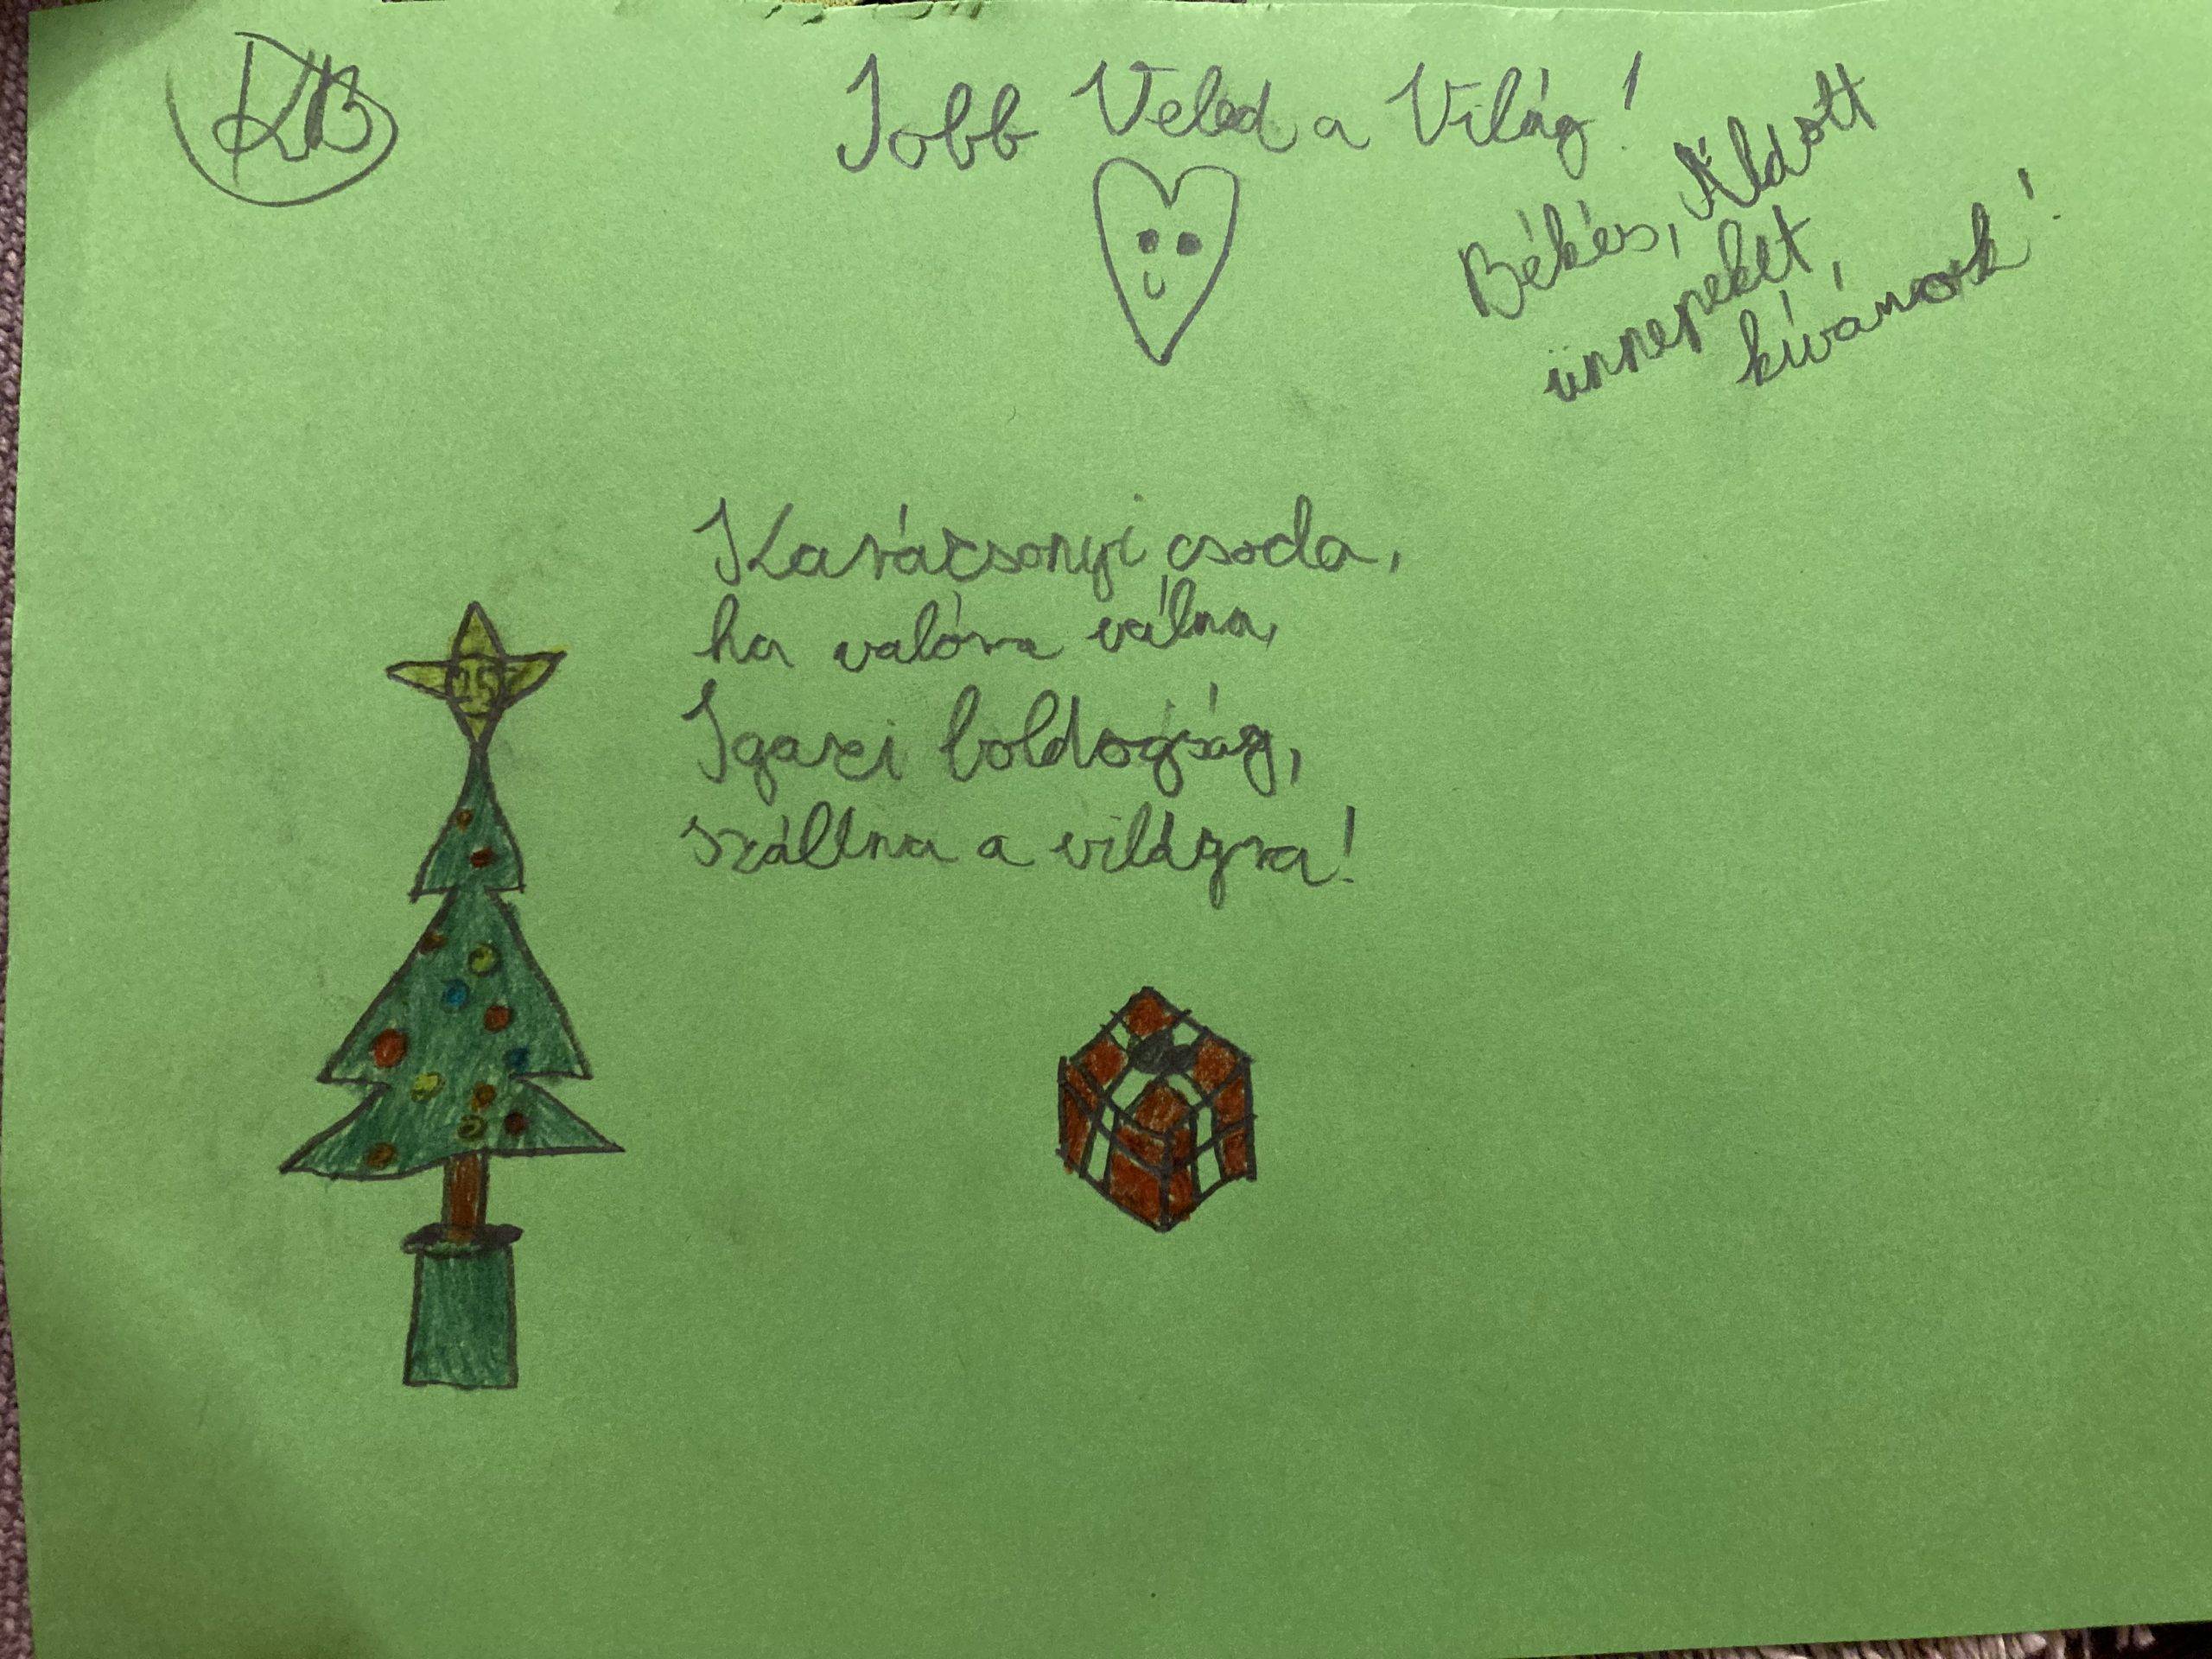 KB
Jobb Veled a Világ!
Békés, Áldott
ünnepeket,
kívánok!
Karácsonyi csoda,
ha valóra válna,
Igazi boldogság,
szállna a világra!